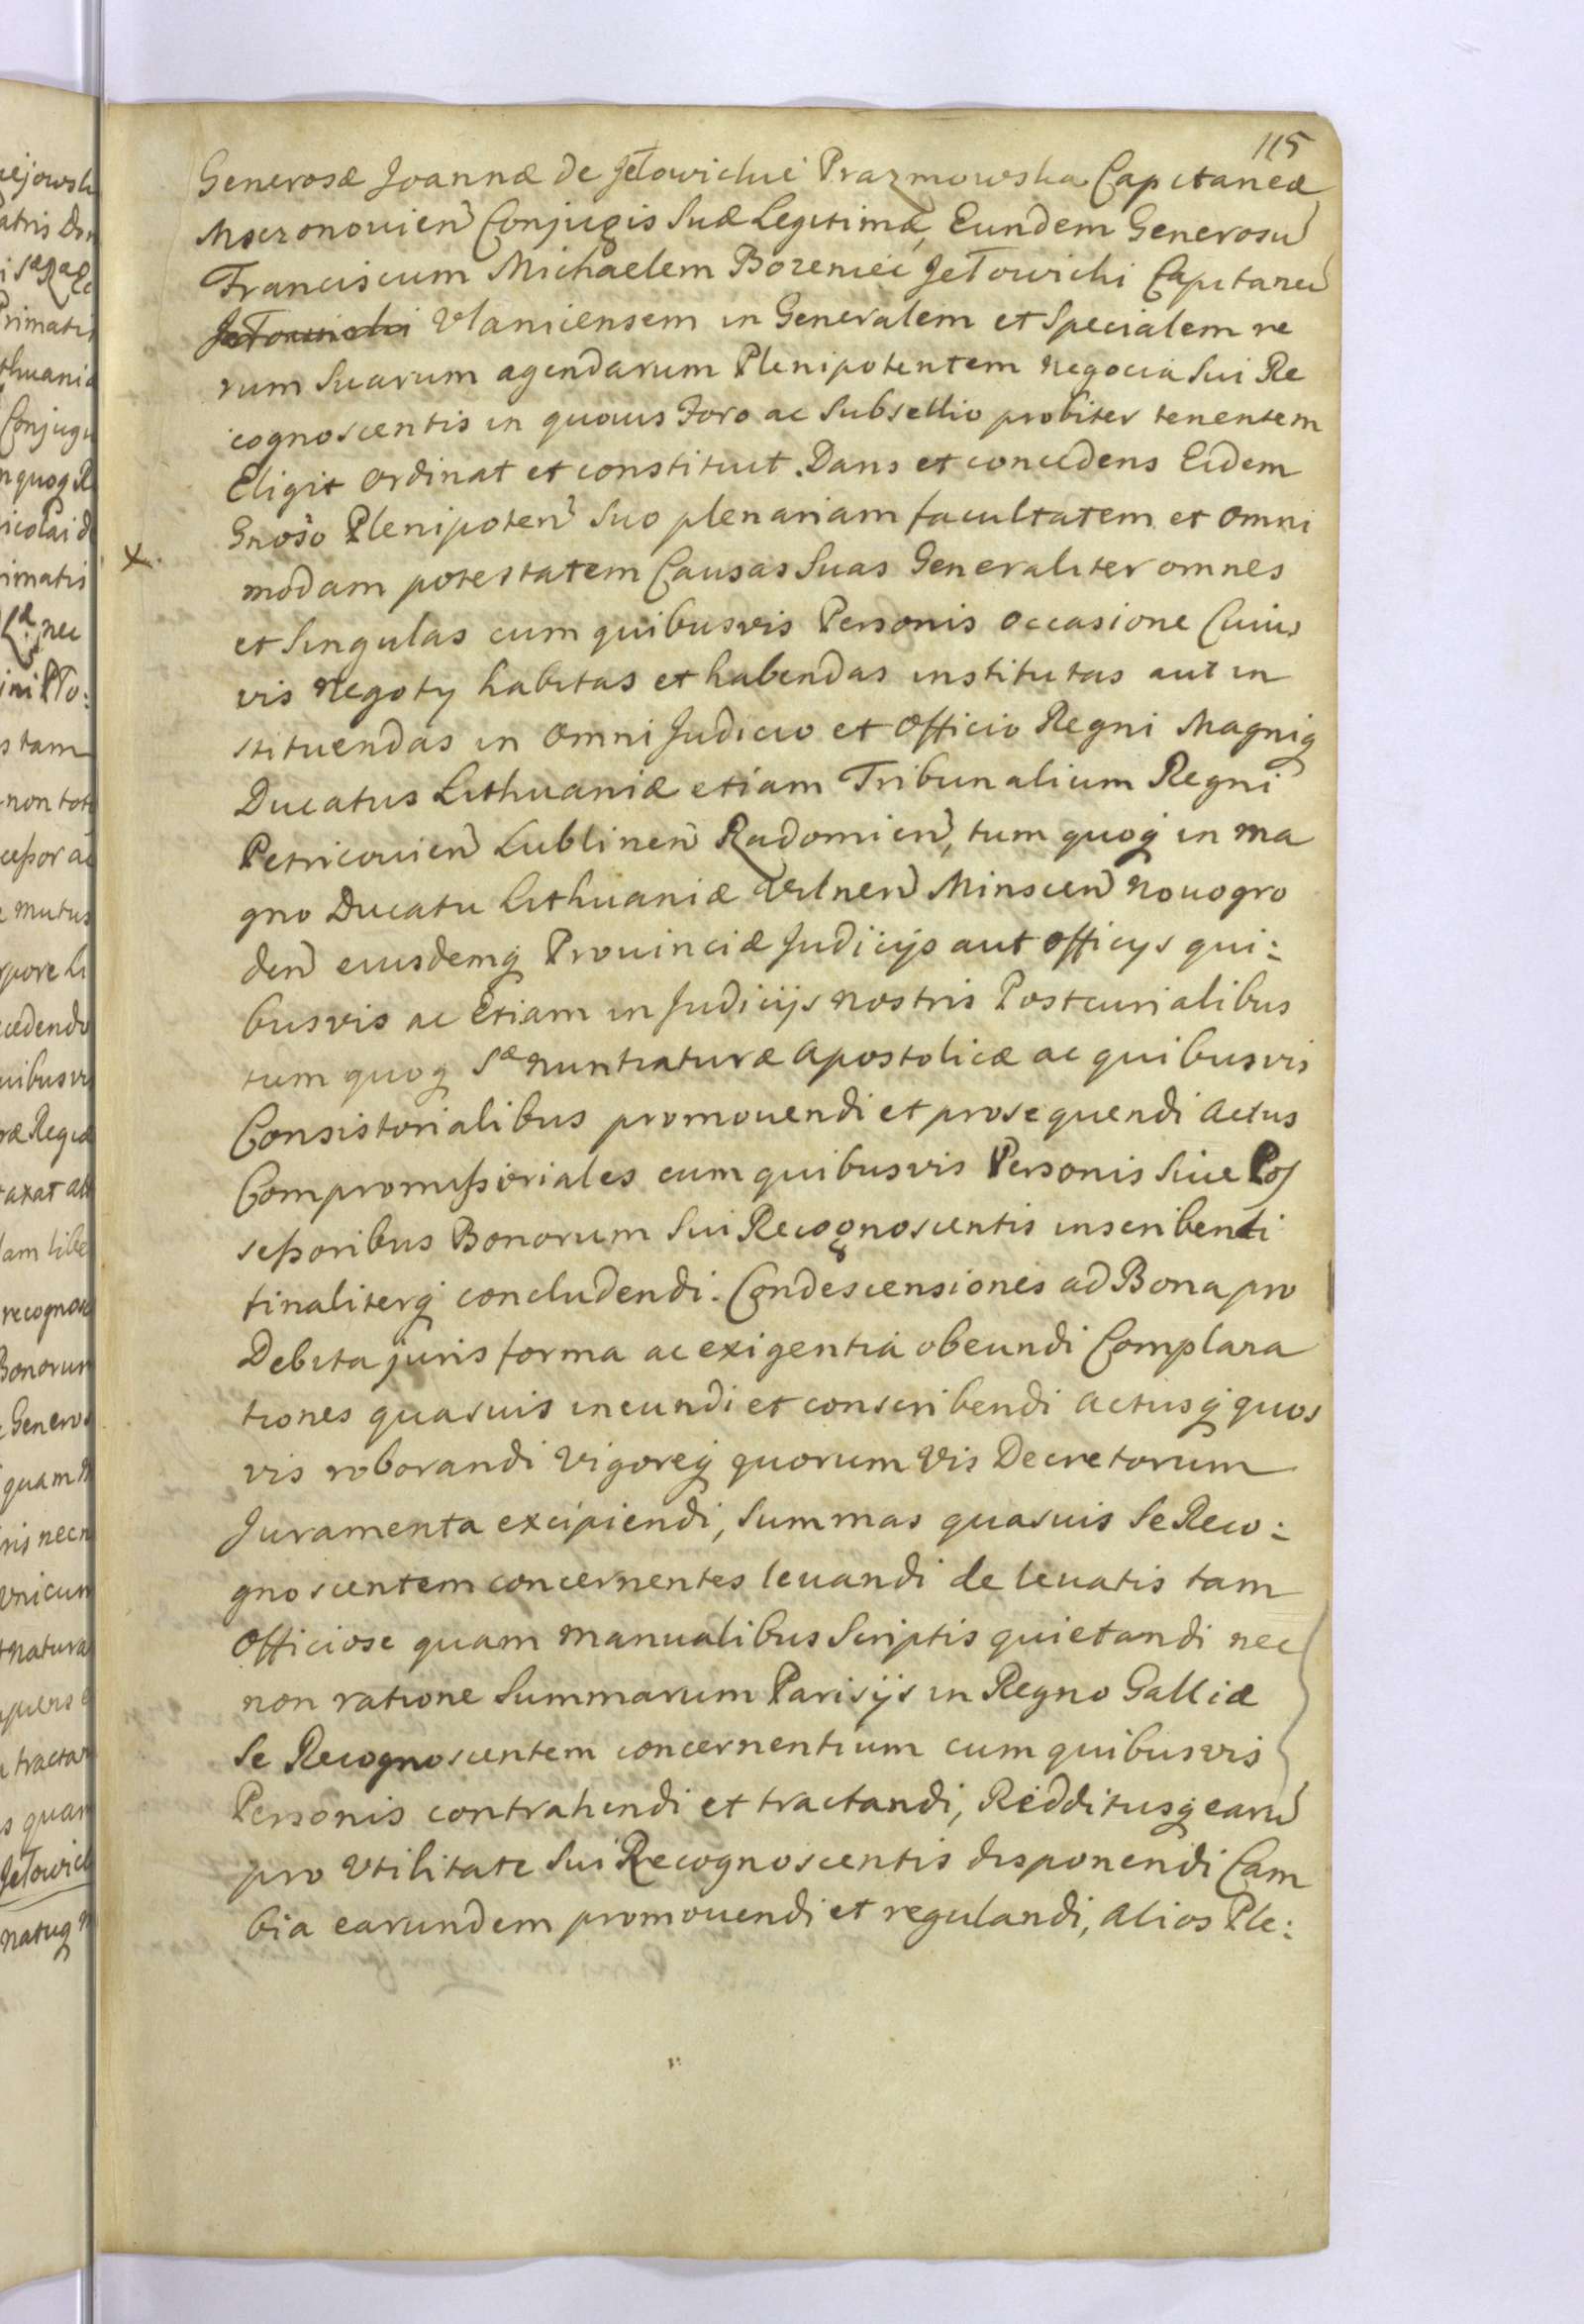 115
Generosæ Joannæ de Jełowichie Prazmowska Capitaneæ
Mscronovien Conjugis Suæ Legitimæ, Eundem Generosu
Franciscum Michaelem Bozeniec Jełowichi Capitaneu
Jełowichi Vlanicensem in Generalem et Specialem re
rum Suarum agendarum Plenipotentem negocia Sui Re
cognoscentis in quovis Foro ac Subsellio probiter tenentem
Eligit Ordinat et constituit. Dans et concedens Eidem
Gnoso Plenipoten Suo plenariam facultatem et omni
modam potestatem Causas Suas Generaliter omnes
et Singulas cum quibusvis Personis occasione Cuius
vis negoty habitas et habendas institutas aut in
stituendas in omni Judicio et Officio Regni Magniq
Ducatus Lithuaniæ etiam Tribunalium Regni
Petricovien Lublinen Radomien, tum quoq in ma
gno Ducatu Lithuaniæ Vilnen Minscen Novogro
den eiusdemq Provinciæ Judicijs aut officys qui:
busvis ac Etiam in Judicijs nostris Postcurialibus
tum quoq Sæ Nuntiaturæ Apostolicæ ac quibusvis
Consistorialibus promovendi et prosequendi actus
Compromissoriales cum quibusvis Personis Sive Pos
sessoribus Bonorum Sui Recognoscentis inscribendi
finaliterq concludendi. Condescensiones ad Bona pro
Debita juris forma ac exigentia obeundi Complana
tiones quasvis ineundi et conscribendi actusq quos
vis roborandi Vigoreq quorum Vis Decretorum
Juramenta excipiendi, Summas quasuis Se Reco:
gnoscentem concernentes levandi de levatis tam
Officiose quam manualibus Scriptis quietandi nec
non ratione Summarum Parisijs in Regno Galliæ
Se Recognoscentem concernentium cum quibusvis
Personis contrahendi et tractandi, Redditusq earu
pro Vtilitate Sui Recognoscentis disponendi Cam
bia earundem promovendi et regulandi, alios Ple: